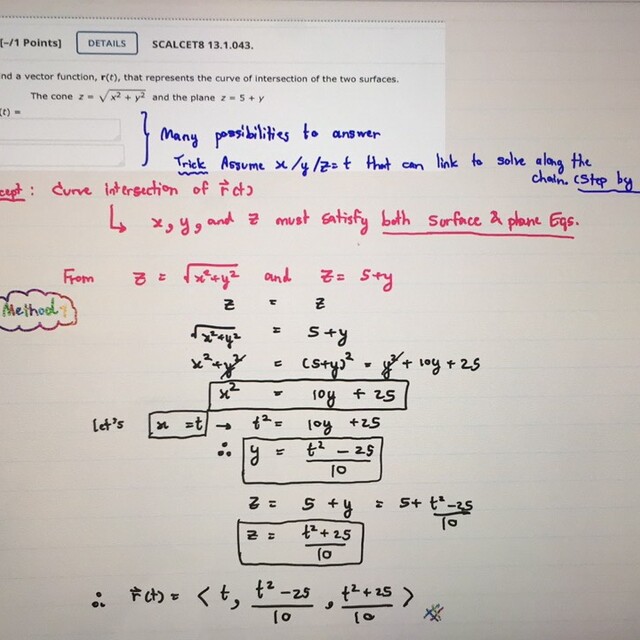 [-/1 Points] DETAILS SCALCET8 13.1.043.
nd a vector function, r(t), that represents the curve of intersection of the two surfaces.
The cone z = √x² + y² and the plane z = 5 + y
(t) =
Many possibilities to answer
Trick Assume x/y/z=t that can link to solve along the
chain. (Step by
cept : Curve intersection of r⃗(t)
↳ x, y, and z must satisfy both surface & plane Eqs.
From z = √x²+y² and z = 5+y
Method 1
z = z
√x²+y² = 5+y
x²+y² = (5+y)² = y² + 10y + 25
x² = 10y + 25
let's x = t → t² = 10y + 25
∴ y = t² - 25 / 10
z = 5 + y = 5 + t² - 25 / 10
z = t² + 25 / 10
∴ r⃗(t) = < t, t² - 25 / 10, t² + 25 / 10 >